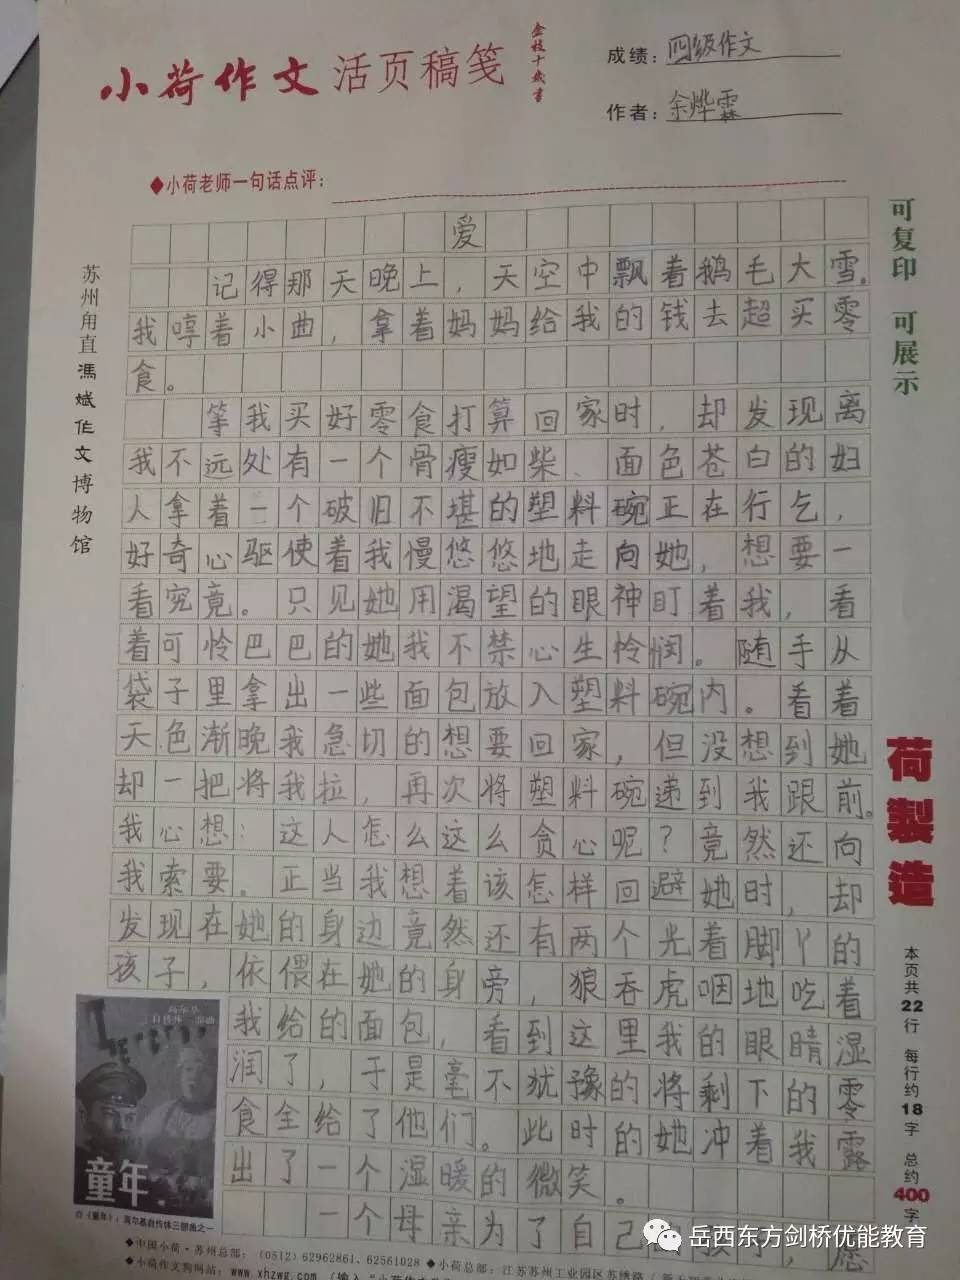 小荷作文活页稿笺
金枝十载書
成绩：四级作文
作者：余烨霖
◆小荷老师一句话点评：
可复印 可展示
苏州甪直馮斌作文博物馆
爱
记得那天晚上，天空中飘着鹅毛大雪。
我哼着小曲，拿着妈妈给我的钱去超买零
食。
等我买好零食打算回家时，却发现离
我不远处有一个骨瘦如柴、面色苍白的妇
人拿着一个破旧不堪的塑料碗正在行乞，
好奇心驱使着我慢悠悠地走向她，想要一
看究竟。只见她用渴望的眼神盯着我，看
着可怜巴巴的她我不禁心生怜悯。随手从
袋子里拿出一些面包放入塑料碗内。看着
天色渐晚我急切的想要回家，但没想到她
却一把将我拉，再次将塑料碗递到我跟前。
我心想：这人怎么这么贪心呢？竟然还向
我索要。正当我想着该怎样回避她时，却
发现在她的身边竟然还有两个光着脚丫的
孩子，依偎在她的身旁，狼吞虎咽地吃着
我给的面包，看到这里我的眼睛湿
润了，于是毫不犹豫的将剩下的零
食全给了他们。此时的她冲着我露
出了一个湿暖的微笑。
一个母亲为了自己，愿
荷製造
本页共22行 每行约18字 总约400字
童年
《童年》：高尔基自传体三部曲之一
◆中国小荷·苏州总部：(0512) 62962861、62561028 ◆小荷总部：江苏苏州工业园区苏绣路
◆小荷作文网站：www.xhzwg.com
岳西东方剑桥优能教育